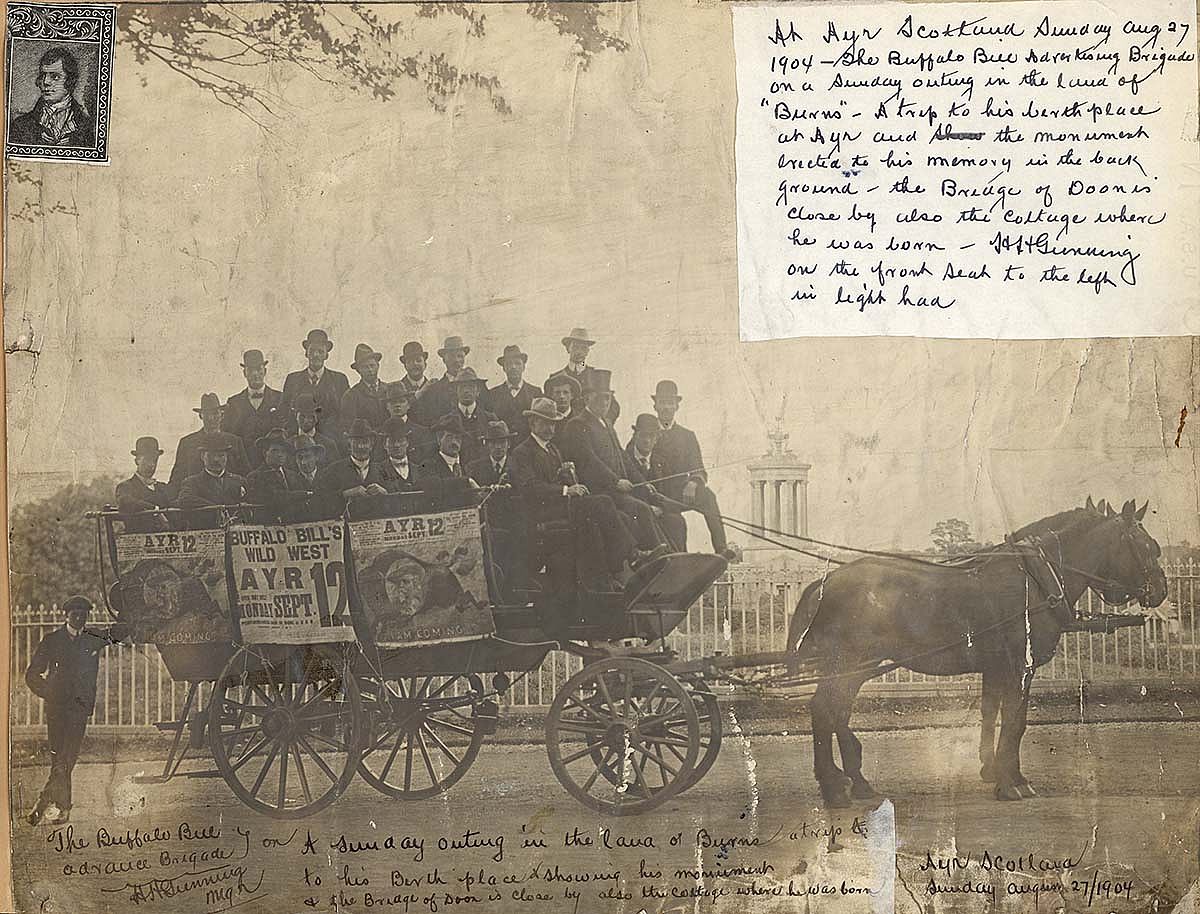 At Ayr Scotland Sunday Aug 27
1904 - The Buffalo Bill Advertising Brigade
on a Sunday outing in the land of
"Burns" - A trip to his berth place
at Ayr and show the monument
erected to his memory in the back
ground - the Bridge of Doon is
close by also the Cottage where
he was born - H H Gunning
on the front seat to the left
in light had
AYR 12
MONDAY SEPT.
I AM COMING
BUFFALO BILL'S
WILD WEST
AYR 12
MONDAY SEPT.
AYR 12
MONDAY SEPT.
I AM COMING
The Buffalo Bill
advance Brigade
H H Gunning
Mgr
on A Sunday outing in the land of Burns a trip
to his Berth place & showing his monument
& the Bridge of Doon is close by also the Cottage where he was born
Ayr Scotland
Sunday August 27/1904